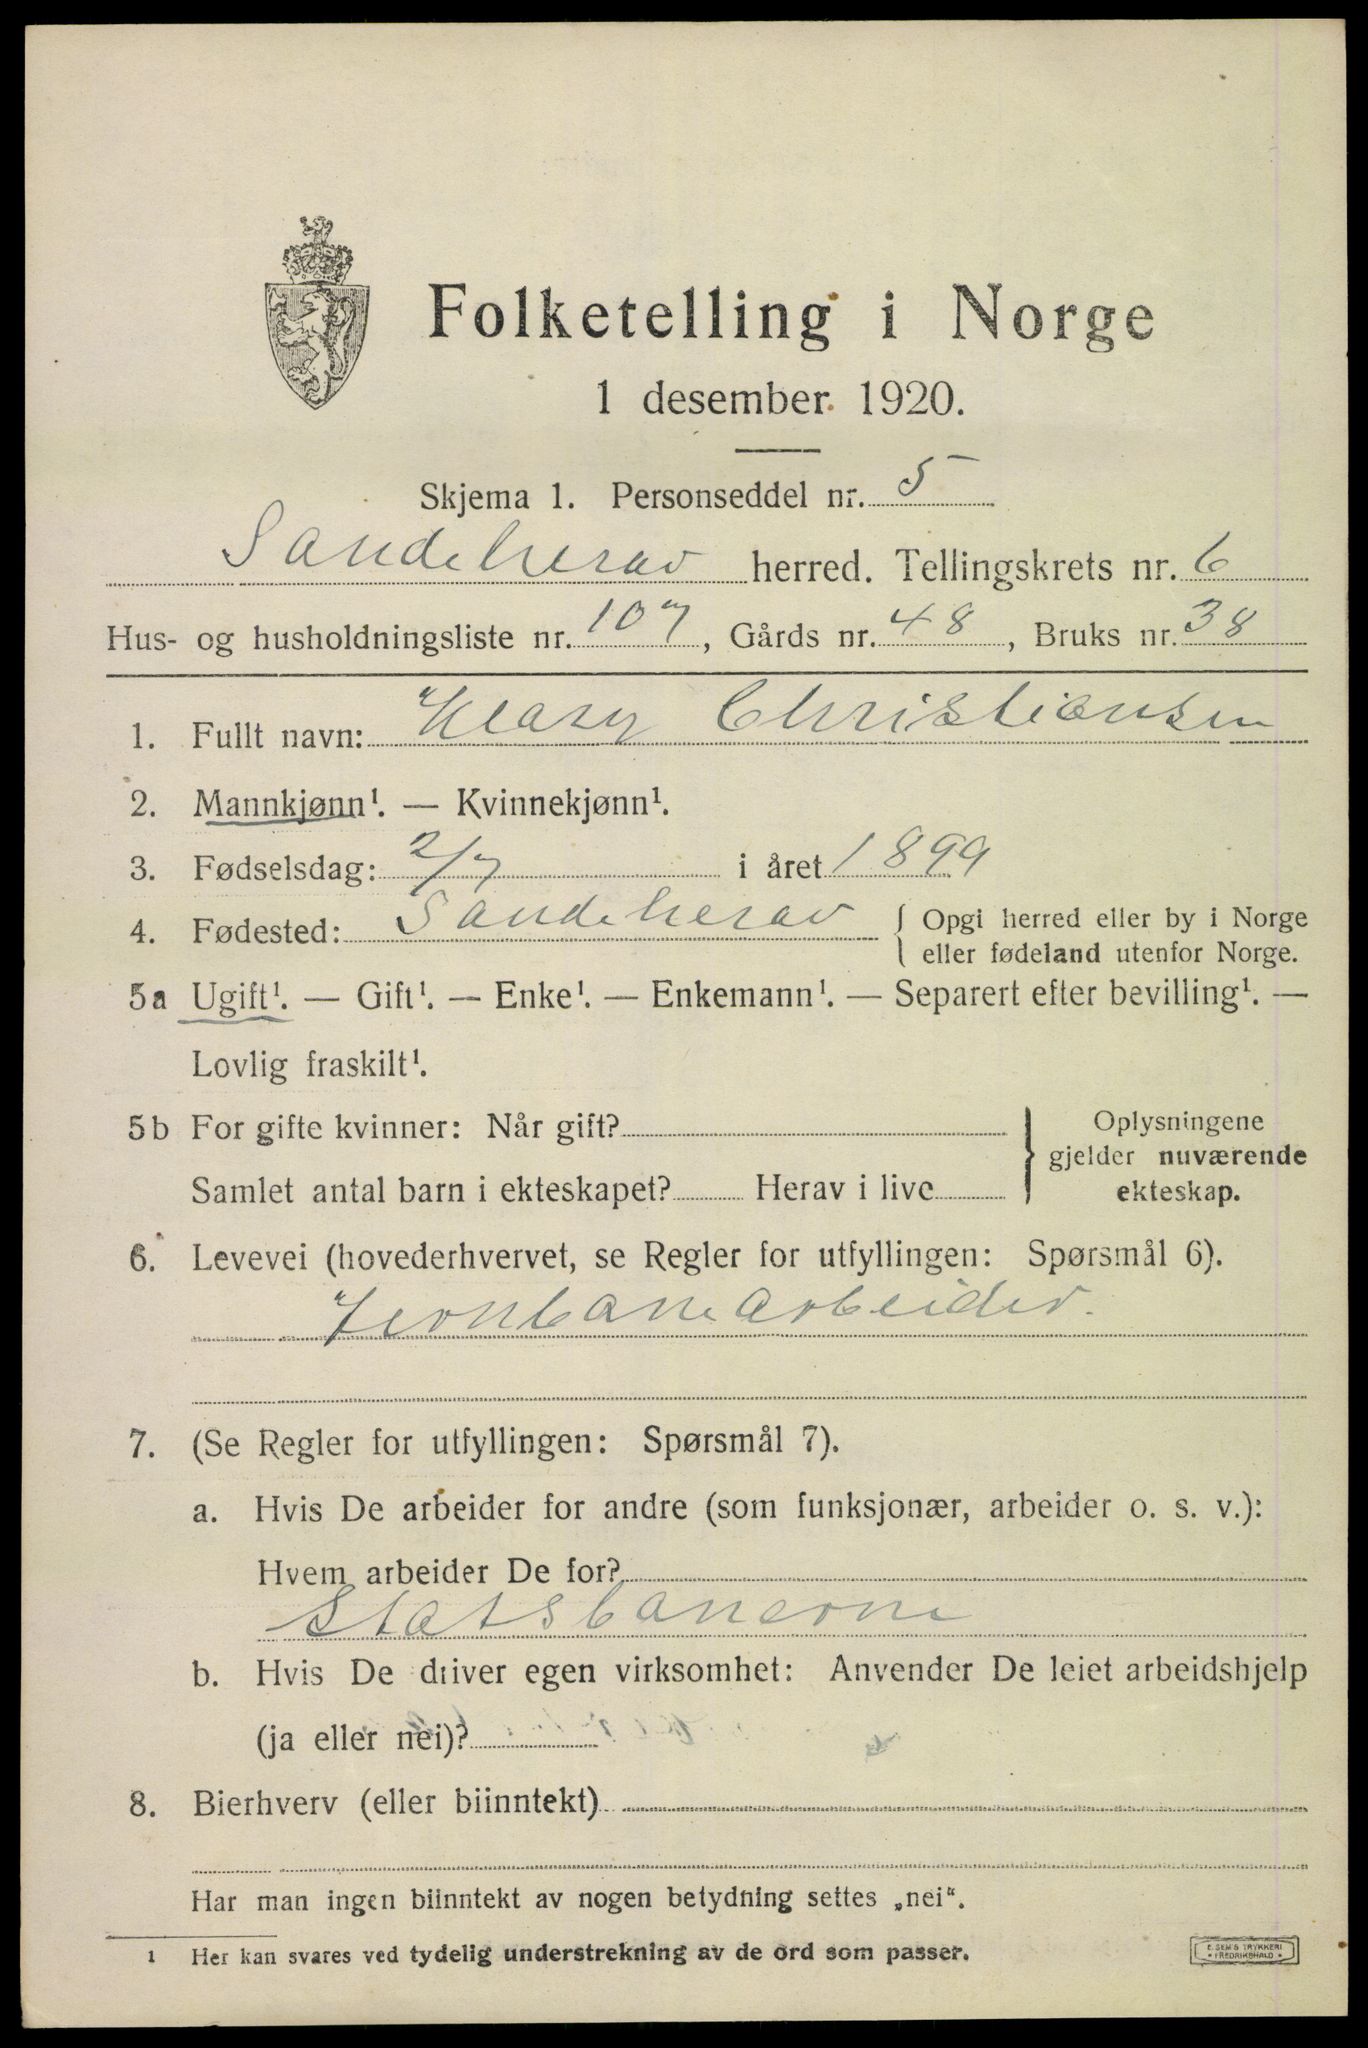 Folketelling i Norge
1 desember 1920.
Skjema 1. Personseddel nr. 5
Sandeherav herred. Tellingskrets nr. 6
Hus- og husholdningsliste nr. 107, Gårds nr. 48, Bruks nr. 38
1. Fullt navn: Christiansen
2. Mannkjønn¹. — Kvinnekjønn¹.
3. Fødselsdag: 2/7 i året 1899
4. Fødested: Sandeherav { Opgi herred eller by i Norge
eller fødeland utenfor Norge.
5a Ugift¹. — Gift¹. — Enke¹. — Enkemann¹. — Separert efter bevilling¹. —
Lovlig fraskilt¹.
5b For gifte kvinner: Når gift?
Samlet antal barn i ekteskapet? Herav i live
} Oplysningene
gjelder nuværende
ekteskap.
6. Levevei (hovederhvervet, se Regler for utfyllingen: Spørsmål 6).
Jernbanearbeider.
7. (Se Regler for utfyllingen: Spørsmål 7).
a. Hvis De arbeider for andre (som funksjonær, arbeider o. s. v.):
Hvem arbeider De for?
Statsbanerne
b. Hvis De driver egen virksomhet: Anvender De leiet arbeidshjelp
(ja eller nei)?
8. Bierhverv (eller biinntekt)
Har man ingen biinntekt av nogen betydning settes „nei“.
1 Her kan svares ved tydelig understrekning av de ord som passer.
E. SEM'S TRYKKERI
• FREDRIKSHALD •